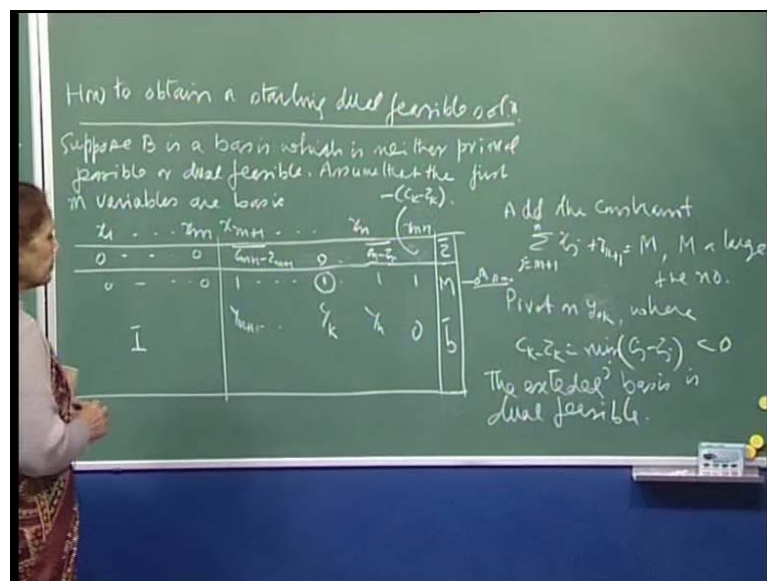 How to obtain a starting dual feasible soln.
Suppose B is a basis which is neither primal
feasible or dual feasible. Assume that the first
m variables are basic
-(Cₖ-Zₖ).
x₁ . . . xₘ xₘ₊₁ . . . xₙ xₙ₊₁
0 - . . 0 Cₘ₊₁-Zₘ₊₁ 0 . . Z̄
0 - . . 0 1 . . . . 1 1 1 M
I Yₘ₊₁. . . Yₖ Yₙ 0 b̄
Add the Constraint
n
∑ xⱼ + xₙ₊₁ = M, M a large
j=m+1
+ve no.
Pivot on y₀ₖ, where
Cₖ-Zₖ = min(Cⱼ-Zⱼ) < 0
The exteded basis is
dual feasible.